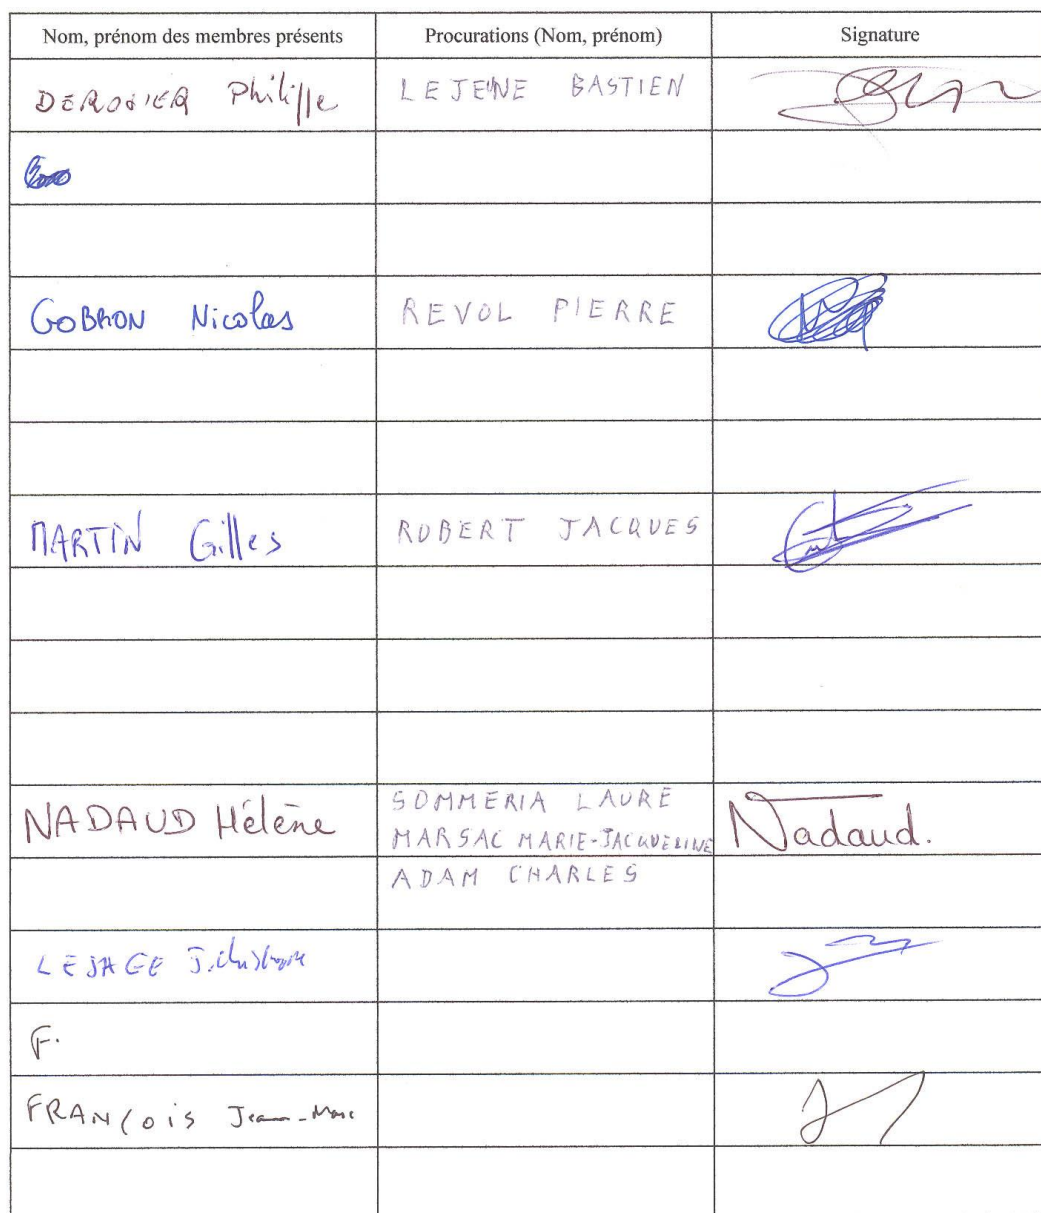 Nom, prénom des membres présents Procurations (Nom, prénom) Signature
DEROSIER Philippe LEJEUNE BASTIEN
GOBRON Nicolas REVOL PIERRE
MARTIN Gilles ROBERT JACQUES
NADAUD Hélène SOMMERIA LAURE Nadaud.
MARSAC MARIE-JACQUELINE
ADAM CHARLES
F.
FRANÇOIS Jean-Marc